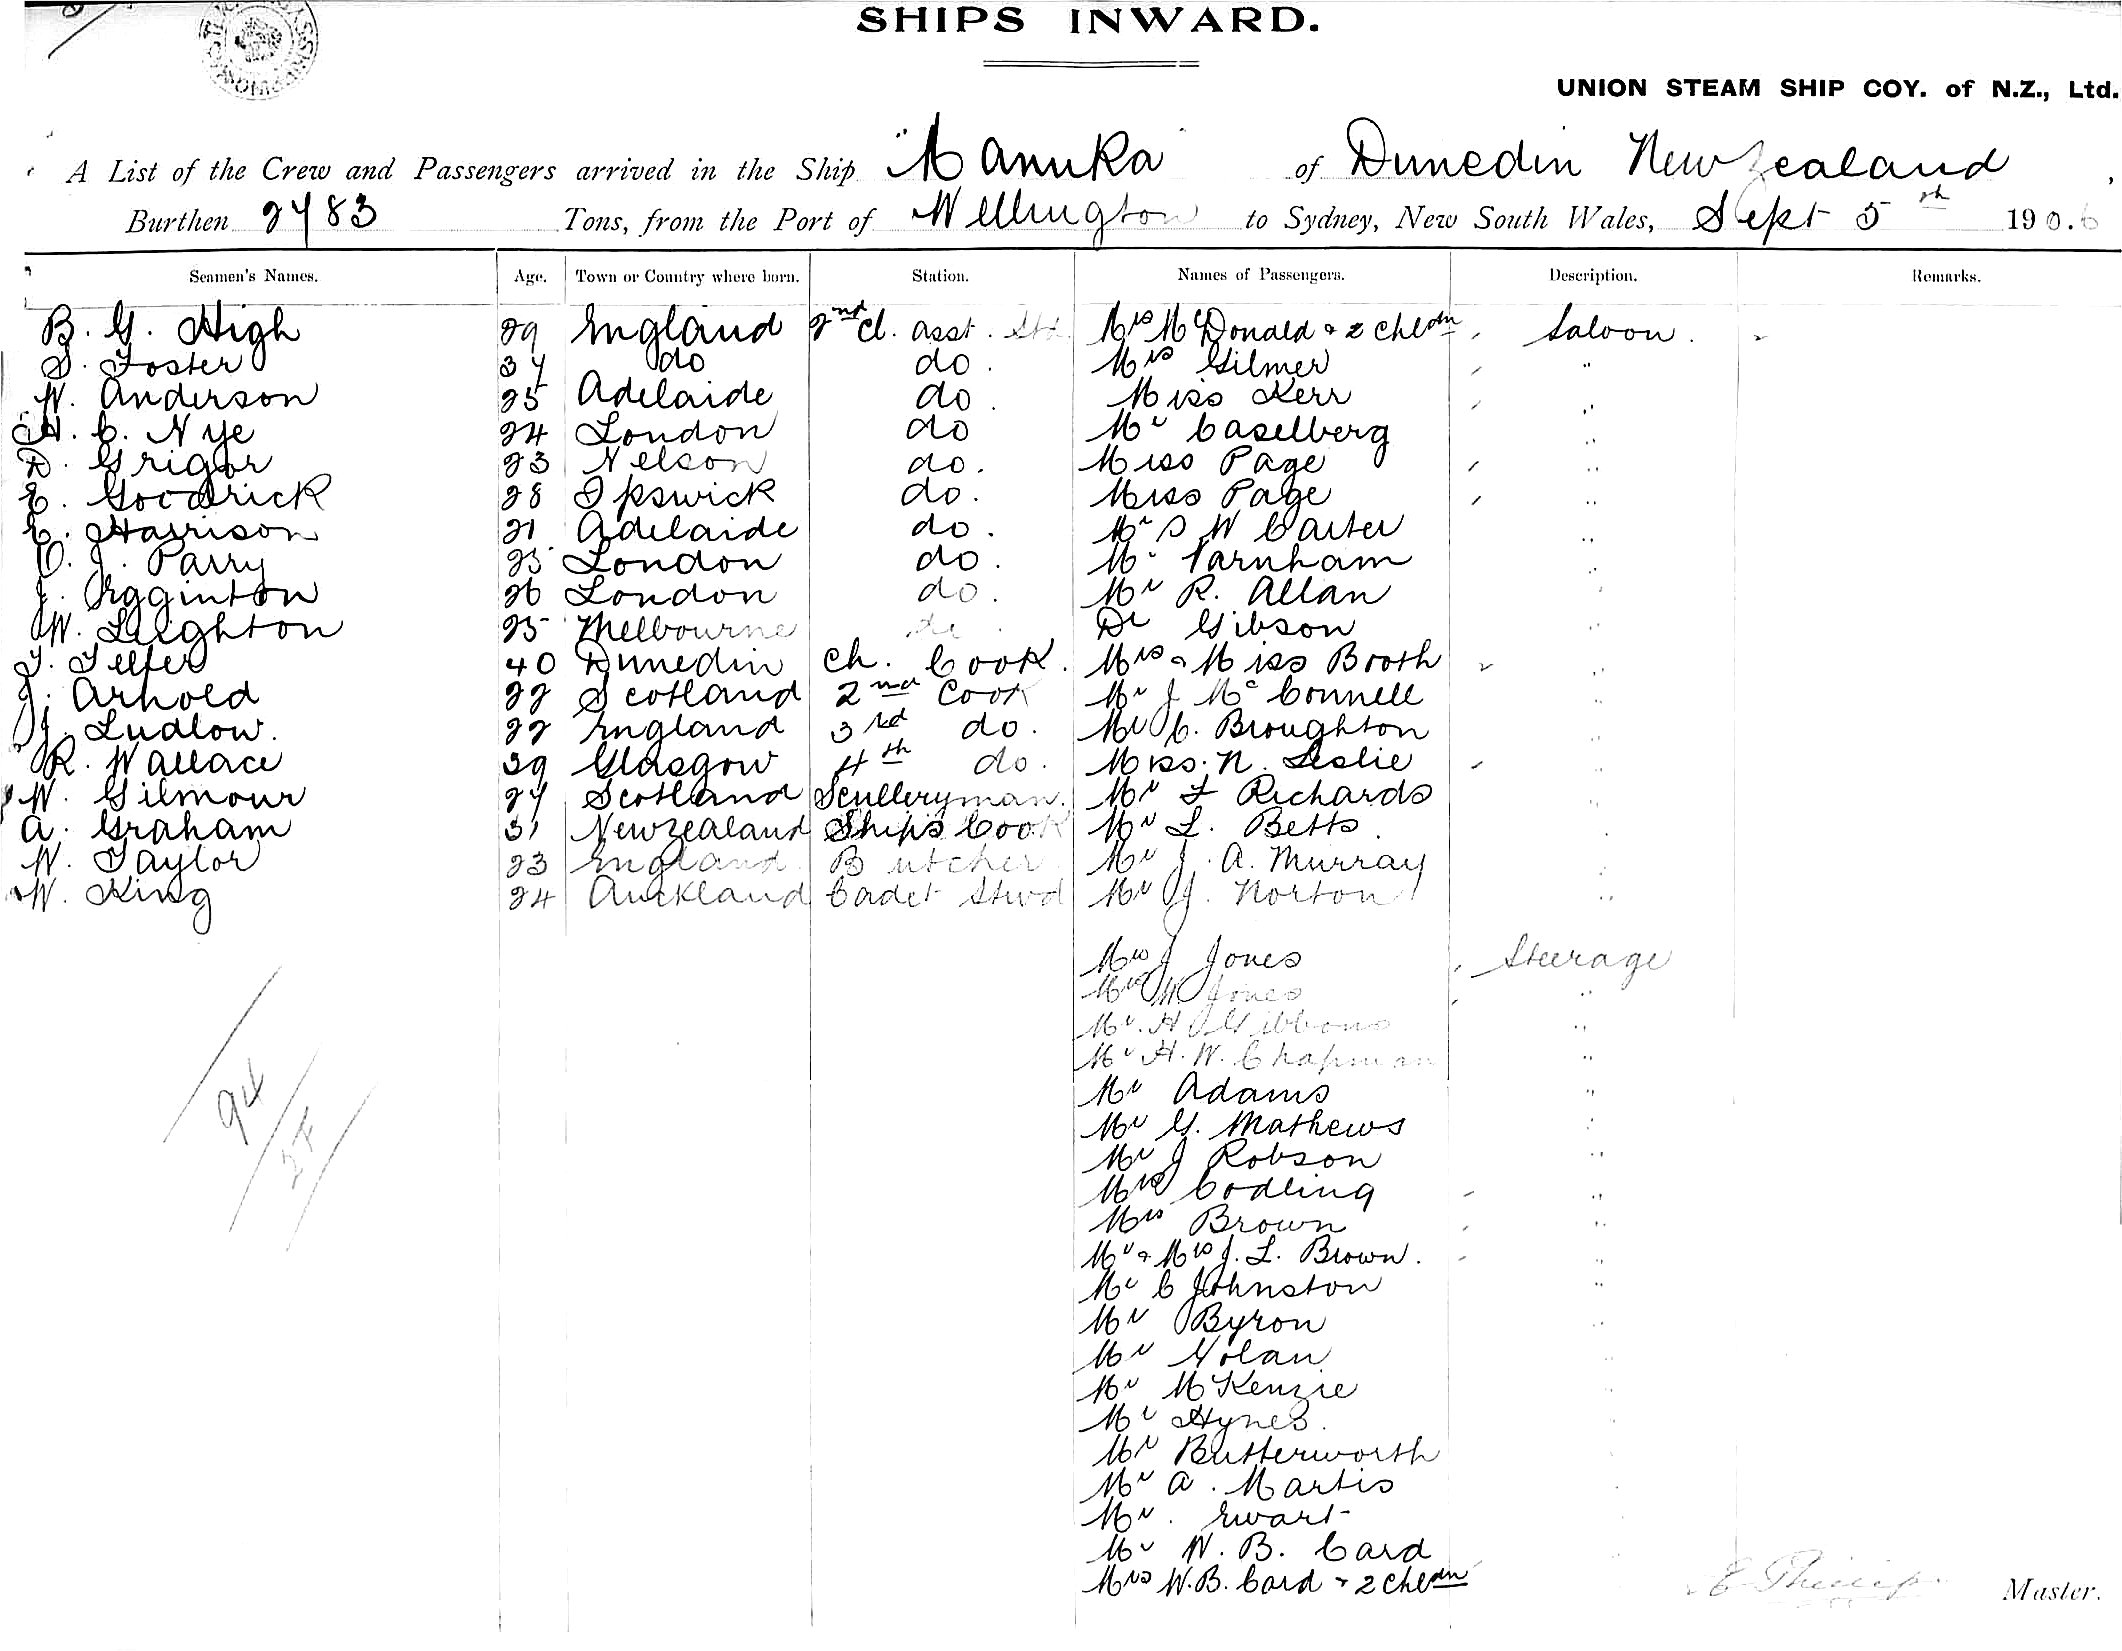 SHIPS INWARD.
UNION STEAM SHIP COY. of N.Z., Ltd.
A List of the Crew and Passengers arrived in the Ship "Manuka" of Dunedin New Zealand,
Burthen 2483 Tons, from the Port of Wellington to Sydney, New South Wales, Sept 5th 1906
Seamen's Names. Age. Town or Country where born. Station. Names of Passengers. Description. Remarks.
B. G. High 29 England 2nd Cl. asst. Std Mrs McDonald & 2 Chldn Saloon.
S. Foster 34 do do. Mrs Gilmer "
W. Anderson 25 Adelaide do. Miss Kerr "
H. C. Nye 24 London do Mr Caselberg "
D. Grigor 23 Nelson do. Miss Page "
E. Goodrick 28 Ipswick do. Miss Page "
E. Harrison 21 Adelaide do. Mr S W Carter "
O. J. Parry 25 London do. Mr Varnham "
J. Egginton 26 London do. Mr R. Allan "
W. Leighton 25 Melbourne do Dr Gibson "
T. Telfer 40 Dunedin Ch. Cook. Mrs & Miss Booth "
J. Arnold 22 Scotland 2nd Cook Mr J McConnell "
J. Ludlow. 22 England 3rd do. Mr C. Broughton "
R. Wallace 39 Glasgow 4th do. Miss. N. Leslie "
W. Gilmour 24 Scotland Sculleryman. Mr F Richards "
A. Graham 31 New Zealand Ships Cook Mr L. Betts. "
W. Taylor 23 England. Butcher Mr J. A. Murray "
W. King 24 Auckland Cadet Stwd Mr J. Norton "
Mrs J Jones Steerage
Mrs W. Jones "
Mr. H Gibbons "
Mr H. W. Chapman "
Mr Adams "
94 Mr G. Mathews "
Mr J Robson "
Mrs Codling "
Mrs Brown "
Mr & Mrs J. L. Brown. "
Mr C Johnston "
Mr Byron "
Mr Nolan "
Mr McKenzie "
Mr Hynes. "
Mr Butterworth "
Mr A. Martis "
Mr. Ewart "
Mr W. B. Card
Mrs W. B. Card & 2 Chldn
Master.